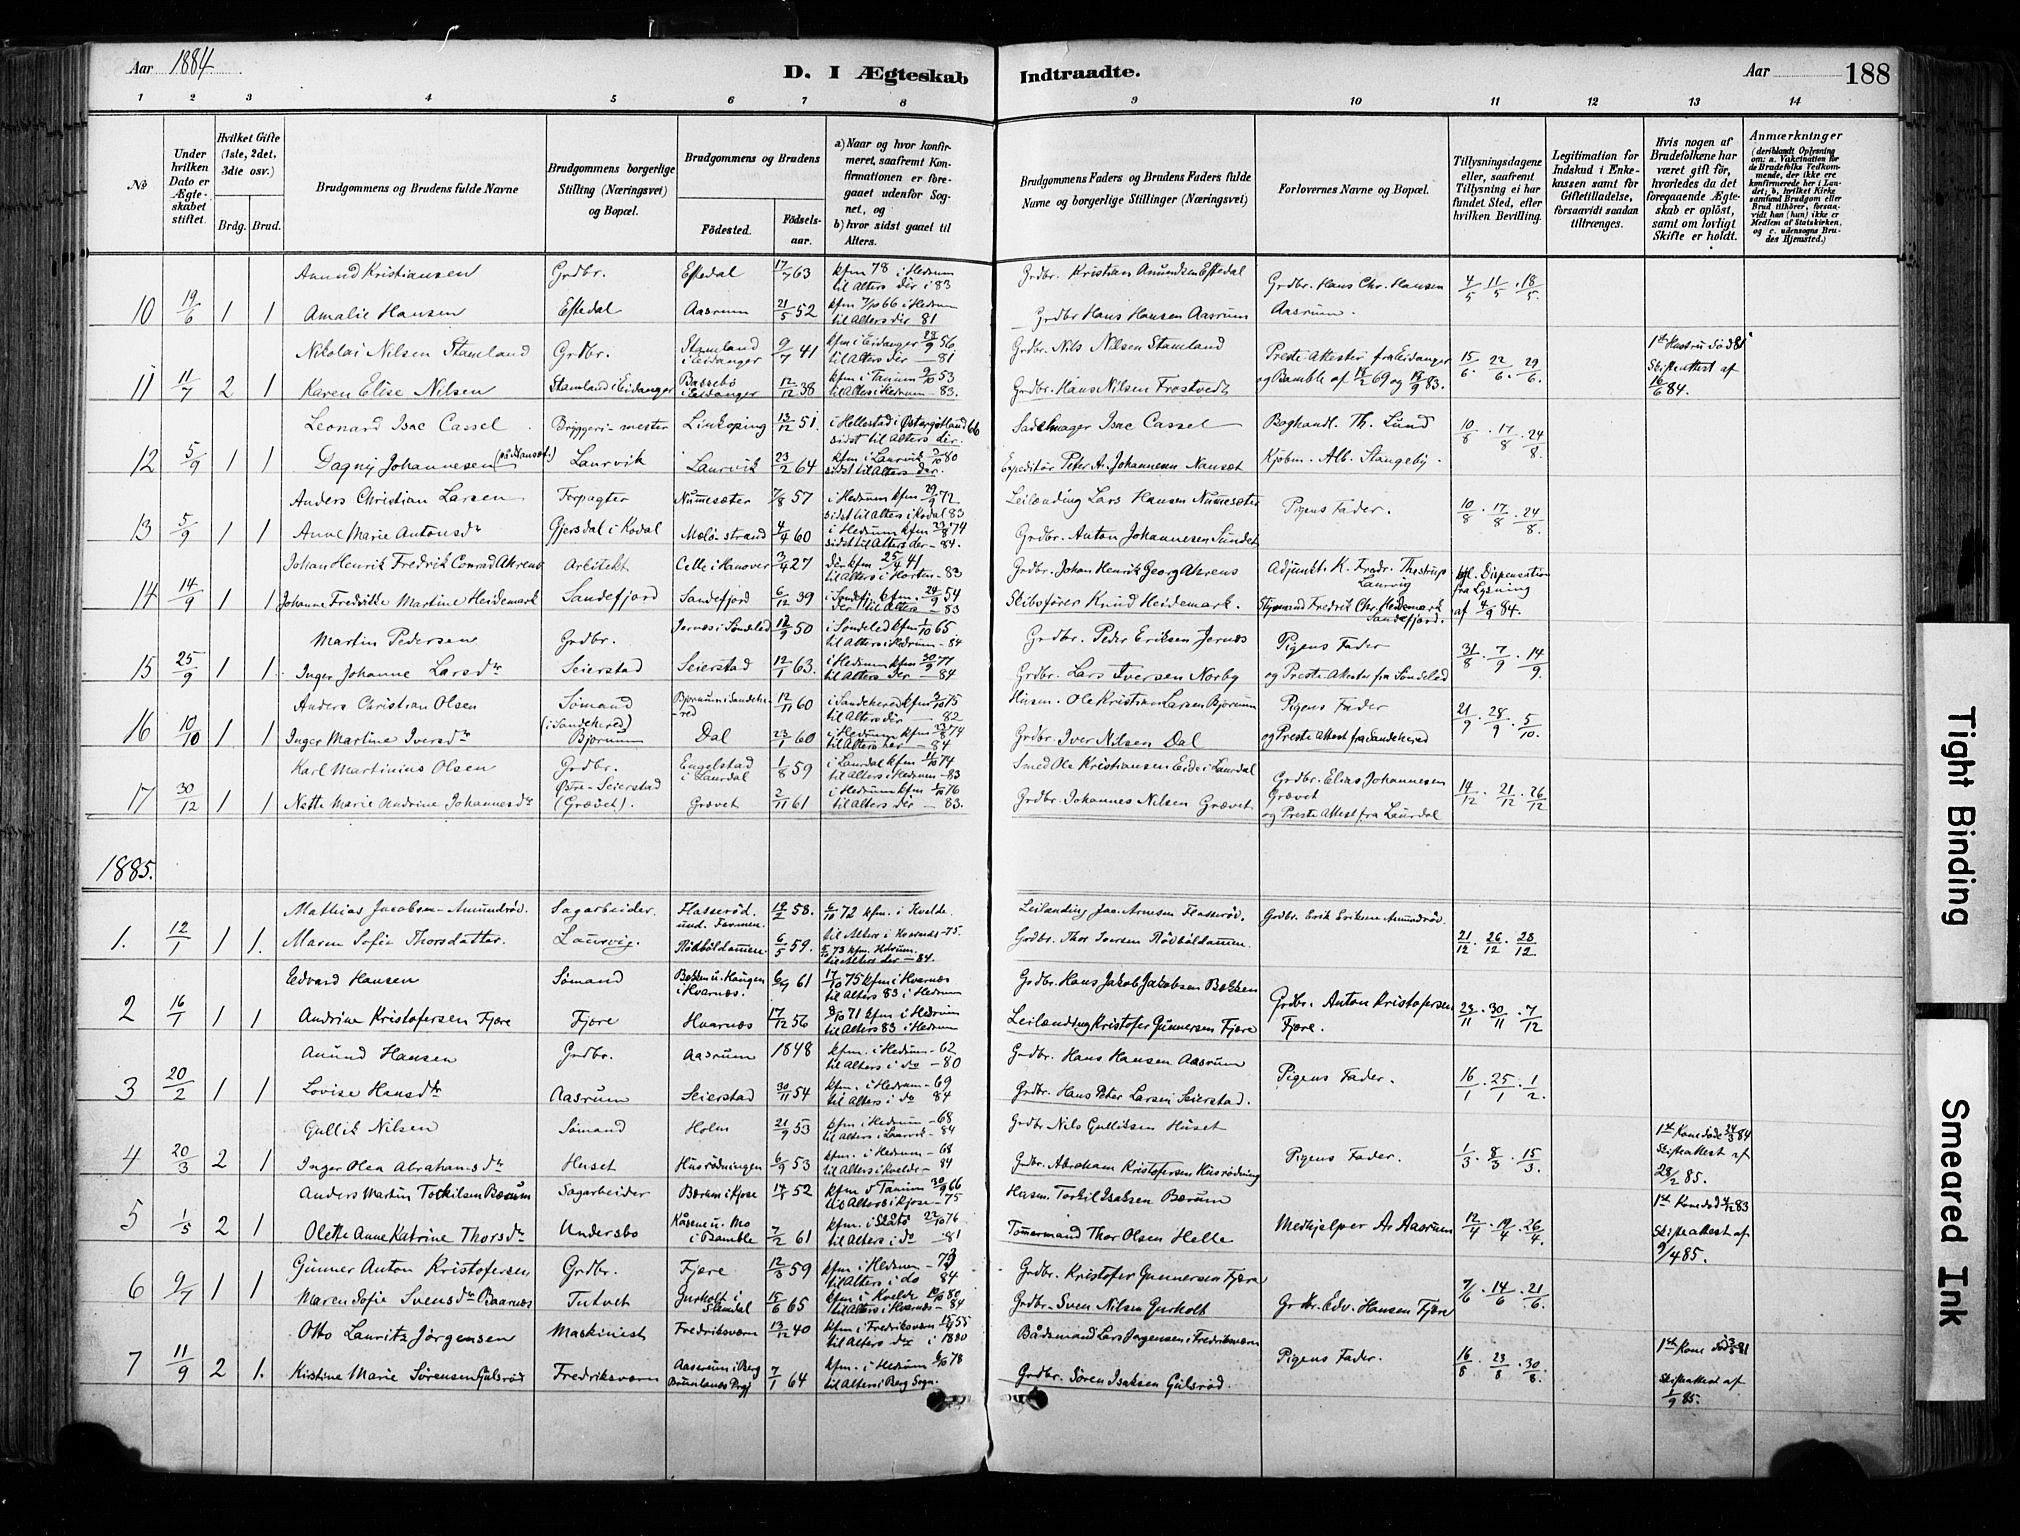 Aar 1884
D. I Ægteskab Indtraadte.
Aar
188
1 2 3 4 5 6 7 8 9 10 11 12 13 14
No
Under hvilken Dato er Ægteskabet stiftet.
Hvilket Gifte (1ste, 2det, 3die osv.)
Brdg. Brud.
Brudgommens og Brudens fulde Navne
Brudgommens borgerlige Stilling (Næringsvei) og Bopæl.
Brudgommens og Brudens
Fødested. Fødselsaar.
a) Naar og hvor konfirmeret, saafremt Konfirmationen er foregaaet udenfor Sognet, og
b) hvor sidst gaaet til Alters.
Brudgommens Faders og Brudens Faders fulde Navne og borgerlige Stillinger (Næringsvei)
Forlovernes Navne og Bopæl.
Tillysningsdagene eller, saafremt Tillysning ei har fundet Sted, efter hvilken Bevilling.
Legitimation for Indskud i Enkekassen samt for Giftetilladelse, forsaavidt saadan tiltrænges.
Hvis nogen af Brudefolkene har været gift før, hvorledes da det foregaaende Ægteskab er opløst, samt om lovligt Skifte er holdt.
Anmærkninger (deriblandt Oplysning om: a. Vakcination for de Brudefolks Vedkommende, der ikke ere konfirmerede her i Landet; b, hvilket Kirkesamfund Brudgom eller Brud tilhører, forsaavidt han (hun) ikke er Medlem af Statskirken, og c. udensogns Brudes Hjemsted.)
Anund Kristiansen Grdbr. Eftedal 17/7 63 kfm 78 i Hedrum til Alters der i 83 Grdbr. Kristian Anundsen Eftedal Grdbr. Hans Chr. Hansen Aasrum. 4/5 11/5 18/5
10 19/6 1 1 Amalie Hansen Eftedal Aasrum 21/5 52 kfm 7/10 66 i Hedrum til Alters der 81 Grdbr Hans Hansen Aasrum
Nikolai Nilsen Stamland Grdbr. Stamland i Eidanger 9/7 41 kfm i Eidanger 28/9 56 til Alters der — 81 Grdbr. Nils Nilsen Stamland Preste Attester fra Eidanger og Bamble 15/6 22/6 29/6 1st Hustru død 81 Skifteattest af 16/6 84.
11 11/7 2 1 Karen Elise Nilsen Stamland i Eidanger Bassebö i Eidanger 12/12 38 kfm i Tanum 9/10 53 til Alters i Hedrum — 83. Grdbr. Hans Nilsen Frostvedt
Leonard Isac Cassel Bryggeri-mester Linkøping 13/12 51. i Hellestad i Østergötland 66 sidst til Alters der. Sadelmager Isac Cassel Boghandl. Th. Lund 10/8 17/8 24/8.
12 5/9 1 1 Dagny Johannesen Laurvik Laurvik 23/2 64 kfm i Laurvik 80 sidst til Alters der. Expeditør Peter A. Johannesen Nanset Kjøbm. Alb. Stangeby.
Anders Christian Larsen Forpagter Nummesæter 7/8 57 i Hedrum kfm 29/9 72 sidst til Alters i Kodal 83 Leilænding Lars Hansen Nummesæter Pigens Fader. 10/8 17/8 24/8.
13 5/9 1 1 Anne Marie Antonsdtr Gjersdal i Kodal 4/4 60 i Hedrum kfm 23/8 74 sidst til Alters der — 84. Grdbr. Anton Johannesen Sundet
Johan Henrik Fredrik Conrad Ahrens Arkitekt Celle i Hanover 3/4 27 der kfm 25/4 41 til Alters i Horten — 83 Grdbr. Johan Henrik Georg Ahrens Adjunkt K. Fredr. Thestrup Laurvig kgl. Dispensation fra Lysning af 4/9 84.
14 14/9 1 1 Johanne Fredrikke Martine Heidemark Sandefjord Sandefjord 6/12 39 i Sandefj. kfm. 24/9 54 der til Alters — 83 Skibsfører Knud Heidemark. Styrmand Fredrik Chr. Heidemark Sandefjord.
Martin Pedersen Grdbr. Jernæs i Søndeled 50 i Søndeled kfm 1/10 65 til Alters i Hedrum — 84 Grdbr. Peder Eriksen Jernæs Pigens Fader 31/8 7/9 14/9.
15 25/9 1 1 Inger Johanne Larsdtr Seierstad Seierstad 12/1 63. i Hedrum kfm 30/9 77 til Alters der — 84 Grdbr. Lars Iversen Norby og Preste-Attester fra Søndeled
Anders Christian Olsen Sømand Bjørnum i Sandehered 12/11 60 i Sandehered kfm 75 til Alters der — 82 Husm. Ole Kristian Larsen Bjørnum Pigens Fader 21/9 28/9 5/10.
16 10/10 1 1 Inger Martine Iversdtr (i Sandehered) Bjørnum Dal 23/1 60 i Hedrum kfm 23/8 74 til Alters her — 84 Grdbr. Iver Nilsen Dal og Preste Attest fra Sandehered
Karl Martinius Olsen Grdbr. Engelstad i Laurdal 1/8 59 i Laurdal kfm 74 til Alters i Hedrum — 83 Smed Ole Kristiansen Eide i Laurdal Grdbr. Elias Johannesen Grævet 19/12 21/12 26/12
17 30/12 1 1 Nette Marie Andrine Johannesdtr Østre-Seierstad (Grævet). Grævet 2/11 61 i Hedrum kfm 76 til Alters der — 83. Grdbr. Johannes Nilsen Grævet og Preste Attest fra Laurdal
1885.
Mathias Jacobsen Amundrød. Sagarbeider. Flasserød. 58. 6/10 72 kfm. i Kvelde. til Alters i Hvarnæs — 75. Leilænding Jac. Arnesen Flasserød. Grdbr. Erik Eriksen Amundrød. 21/12 26/12 28/12
1. 12/1 1 1. Maren Sofie Thorsdatter. Laurvig. Rødbøldammen. 6/5 59. 73 kfm. Hedrum. til Alters der — 84. Grdbr. Thor Iversen Rødbøldammen.
Edvard Hansen Sømand Bekken u. Haugen i Hvarnæs. 61 17/10 75 kfm i Hvarnæs til Alters 83 i Hedrum Grdbr. Hans Jakob Jakobsen Bækken Grdbr. Anton Kristofersen Fjære. 23/11 30/11 7/12
2 16/1 1 1 Andrine Kristofersen Fjære Fjære Hvarnæs 17/12 56 71 kfm i Hedrum til Alters 83 i Hedrum Leilænding Kristofer Gunnersen Fjære
Anund Hansen Grdbr. Aasrum 1848 kfm. i Hedrum — 62 til Alters i do — 80 Grdbr. Hans Hansen Aasrum Pigens Fader. 16/1 25/1 1/2.
3 20/2 1 1 Lovise Hansdtr Aasrum Seierstad 30/11 54 kfm. i Hedrum — 69 til Alters i do 84 Grdbr. Hans Peter Larsen Seierstad.
Gullik Nilsen Sømand Holm 21/9 53 kfm i Hedrum — 68 til Alters i Laurvik — 84 Grdbr Nils Gulliksen Huset Pigens Fader. 1/3 8/3 15/3. 1st Kone døde 24/3 84 Skifteattest af 28/2 85.
4 20/3 2 1 Inger Olea Abrahamsdtr Huset Husrødningen 6/9 53 kfm. i Hedrum — 68 til Alters i Kvelde — 84 Grdbr. Abraham Kristofersen Husrødning
Anders Martin Torkilsen Bærum Sagarbeider Bærum i Kjose 14/1 52 kfm i Tanum 30/9 66 til Alters i Kjose — 75 Husm. Torkil Isaksen Bærum Medhjelper A. Aasrum 12/4 19/4 26/4. 1st Kone død 83 Skifteattest af 9/4 85.
5 1/5 2 1 Olette Anne Katrine Thorsdtr Undersbo Kåsene u. Mo i Bamble 7/2 61 kfm. i Slåtö 22/10 76 til Alters i do — 81 Tømmermand Thor Olsen Helle
Gunner Anton Kristofersen Grdbr. Fjære 12/3 59 kfm i Hedrum til Alters i do 84 Grdbr. Kristofer Gunnersen Fjære 7/6 14/6 21/6.
6 9/7 1 1 Maren Sofie Svensdtr Baarnæs Tutvet Gurholt i Slemdal 15/6 65 kfm i Kvelde 80 til Alters i Hvarnæs — 84 Grdbr. Sven Nilsen Gurholt Grdbr. Edv. Hansen Fjære
Otto Lauritz Jørgensen Maskinist Fredriksværn 13/12 40 kfm i Fredriksværn 55 til Alters do i 1880 Bådsmand Lars Jørgensen i Fredriksværn Pigens Fader. 16/8 23/8 30/8. 1st Kone død 81 Skifteattest af 1/9 85.
7 11/9 2 1. Kirstine Marie Sørensen Gulsrød Fredriksværn Aaserum i Berg Brunlanes Prgj 7/1 64 kfm. i Hedrum 78 til Alters i Berg Sogn. Grdbr. Søren Isaksen Gulsrød.
Tight Binding
Smeared Ink